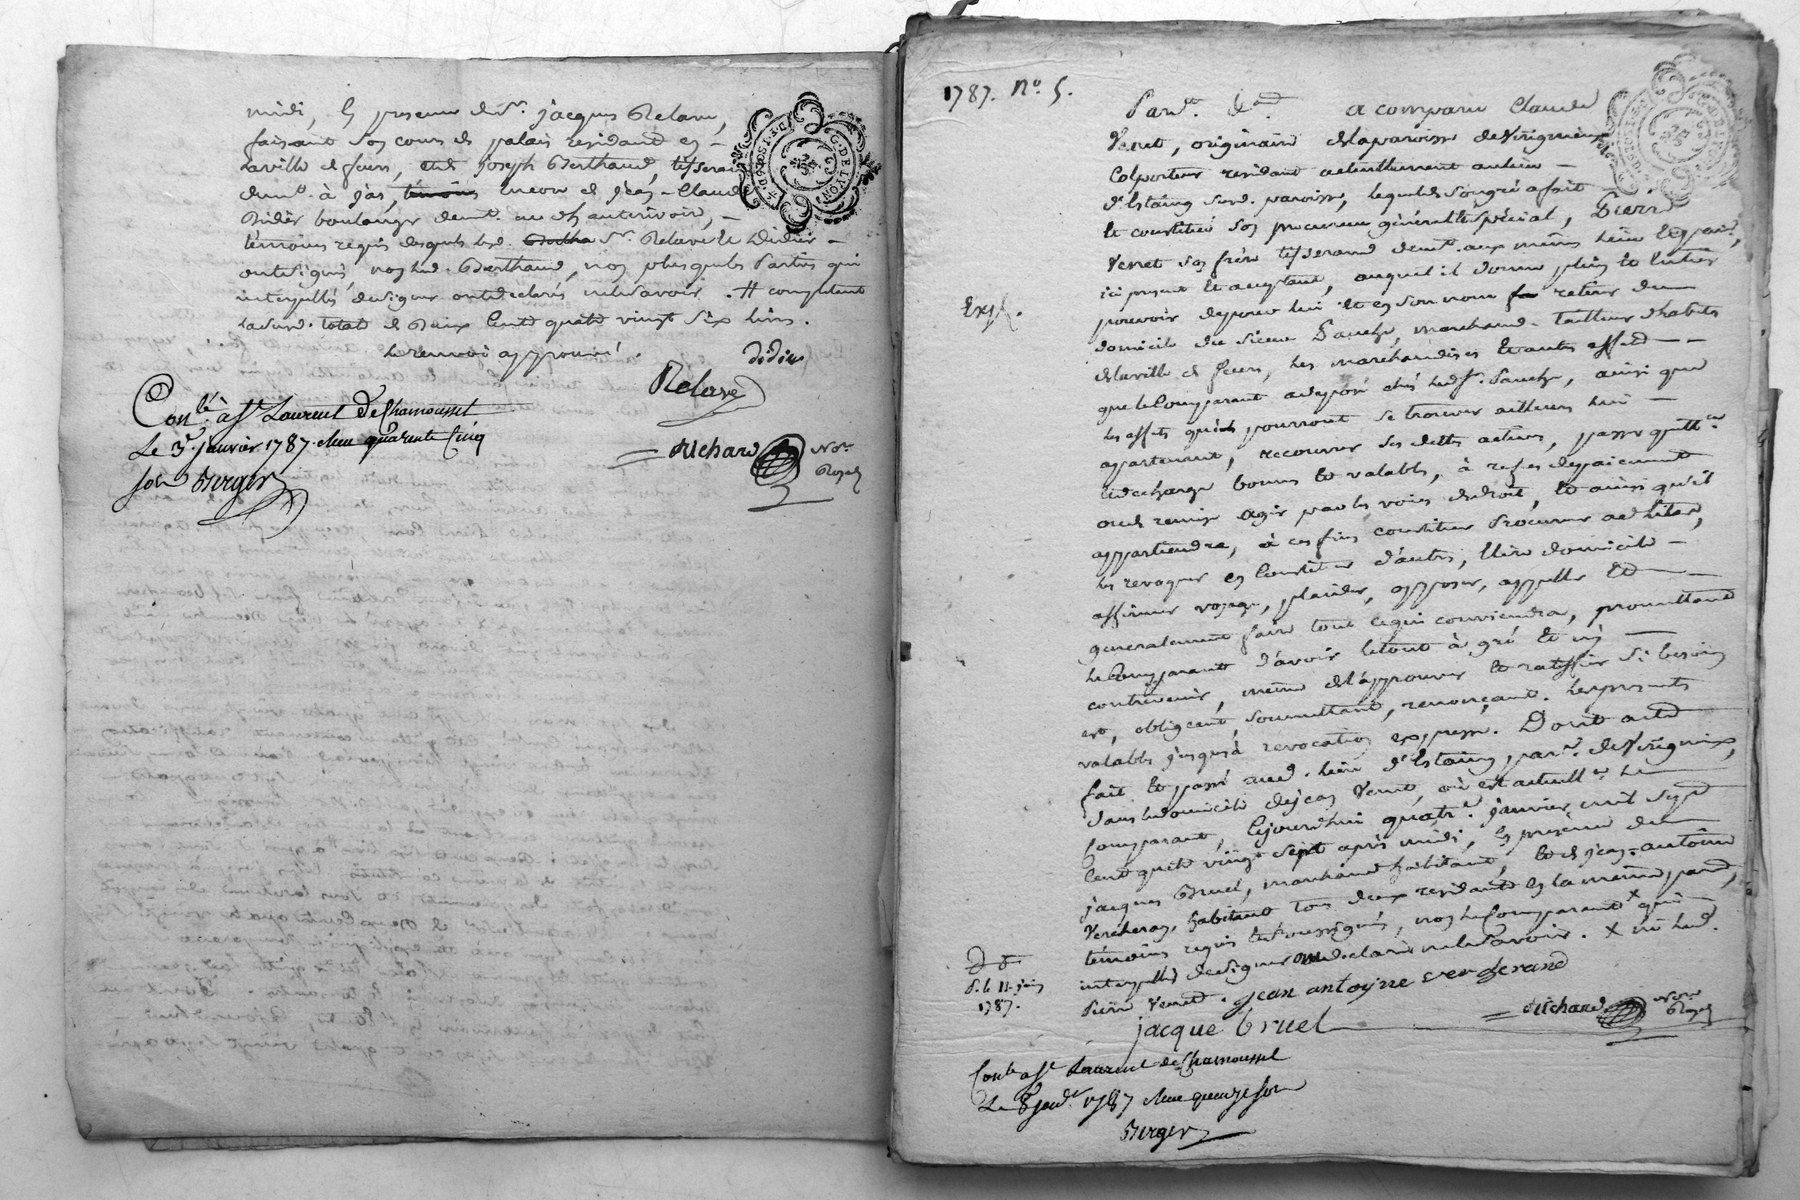 midi, en presence de Sr. jacques Relave,
faisant son cours de palais residant en
laville de feurs, et de joseph Berthaud, tisserand
demt. à jas, témoins encore de jean-Claude
Didier boulanger demt. au
témoins requis desquels led. Sr. Relave le Didier
ont signé, non led. Berthaud, non plus que les Parties qui
interpellés de signer ont declaré ne le savoir. # compétent
la somme totale de Deux Cents quatre vingt six livres.
Le renvoi approuvé.
didier
Relave
Richard Nore. Royal
Conlé. à St. Laurent de Chamousset
Le 3e. janvier 1787. Reçu quarante Cinq
sols Berger
G. DE LYON
1787. No. 5.
Pardt. &a. a comparu Claude
Verret, originaire de la paroisse de Virigneux
Colporteur residant actuellement au lieu
d'Estaing susd. paroisse, lequel de son gré a fait
et constitué son procureur général et spécial, Pierre
Verret son frère tisserand demt. aux mêmes lieu et par.,
ici present et acceptant, auquel il donne plein et entier
pouvoir de pour lui et en son nom retirer du
domicile du sieur marchand-tailleur d'habits
de la ville de feurs, les marchandises et autres effets
que le Comparant a deposé chés led. Sr. ainsi que
les effets qui pourront se trouver ailleurs lui
appartenant, recouvrer ses dettes actives, passer quittce.
et decharge bonnes et valables, à refus de paiement
ou de remise agir par les voies de droit, et ainsi qu'il
appartiendra, à ces fins constituer Procureur ad lites,
les revoquer en Constituer d'autres, élire domicile
affirmer voyage, plaider, opposer, appeller et
generalement faire tout ce qui conviendra, promettant
le Comparant d'avoir le tout à gré et n'y
contrevenir, même de l'approuver et ratiffier si besoin
est, obligeant, soumettant, renonçant. Les presentes
valables jusqu'à revocation expresse. Dont acte
fait et passé aud. lieu d'Estaing, par. de Virigneux,
dans le domicile de jean Verret, où est actuellt. le
Comparant, Cejourd'hui quatre. janvier mil sept
Cent quatre vingt sept après midi, en presence de
jacques Bruel, marchand habitant, et de jean-antoine
Vercherand, habitant tous deux residants en la même par.,
témoins requis et soussignés, non le Comparant x qui
interpellé de signer ont declaré ne le savoir. x ni led.
Pierre Verret. jean antoyne vercherand
jacque bruel
Richard Nore. Royal
Expé.
le 11. juin
1787.
Conlé à St Laurent de Chamousset
Le 8 janvr. 1787 Reçu quinze sols
Berger